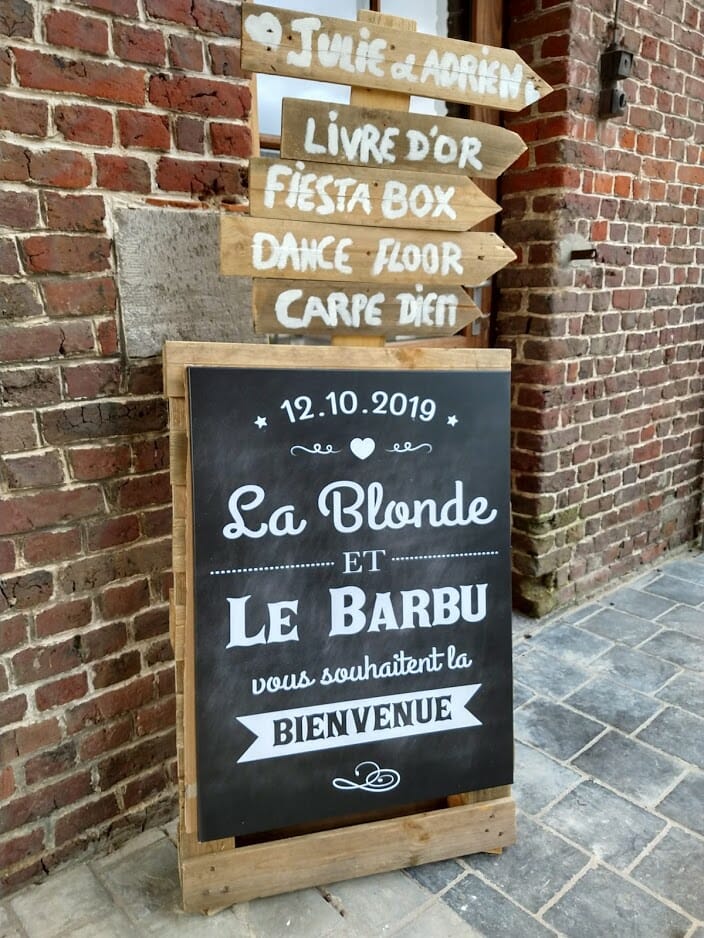 JULIE & ADRIEN
LIVRE D'OR
FIESTA BOX
DANCE FLOOR
CARPE DIEM
12.10.2019
La Blonde
ET
LE BARBU
vous souhaitent la
BIENVENUE